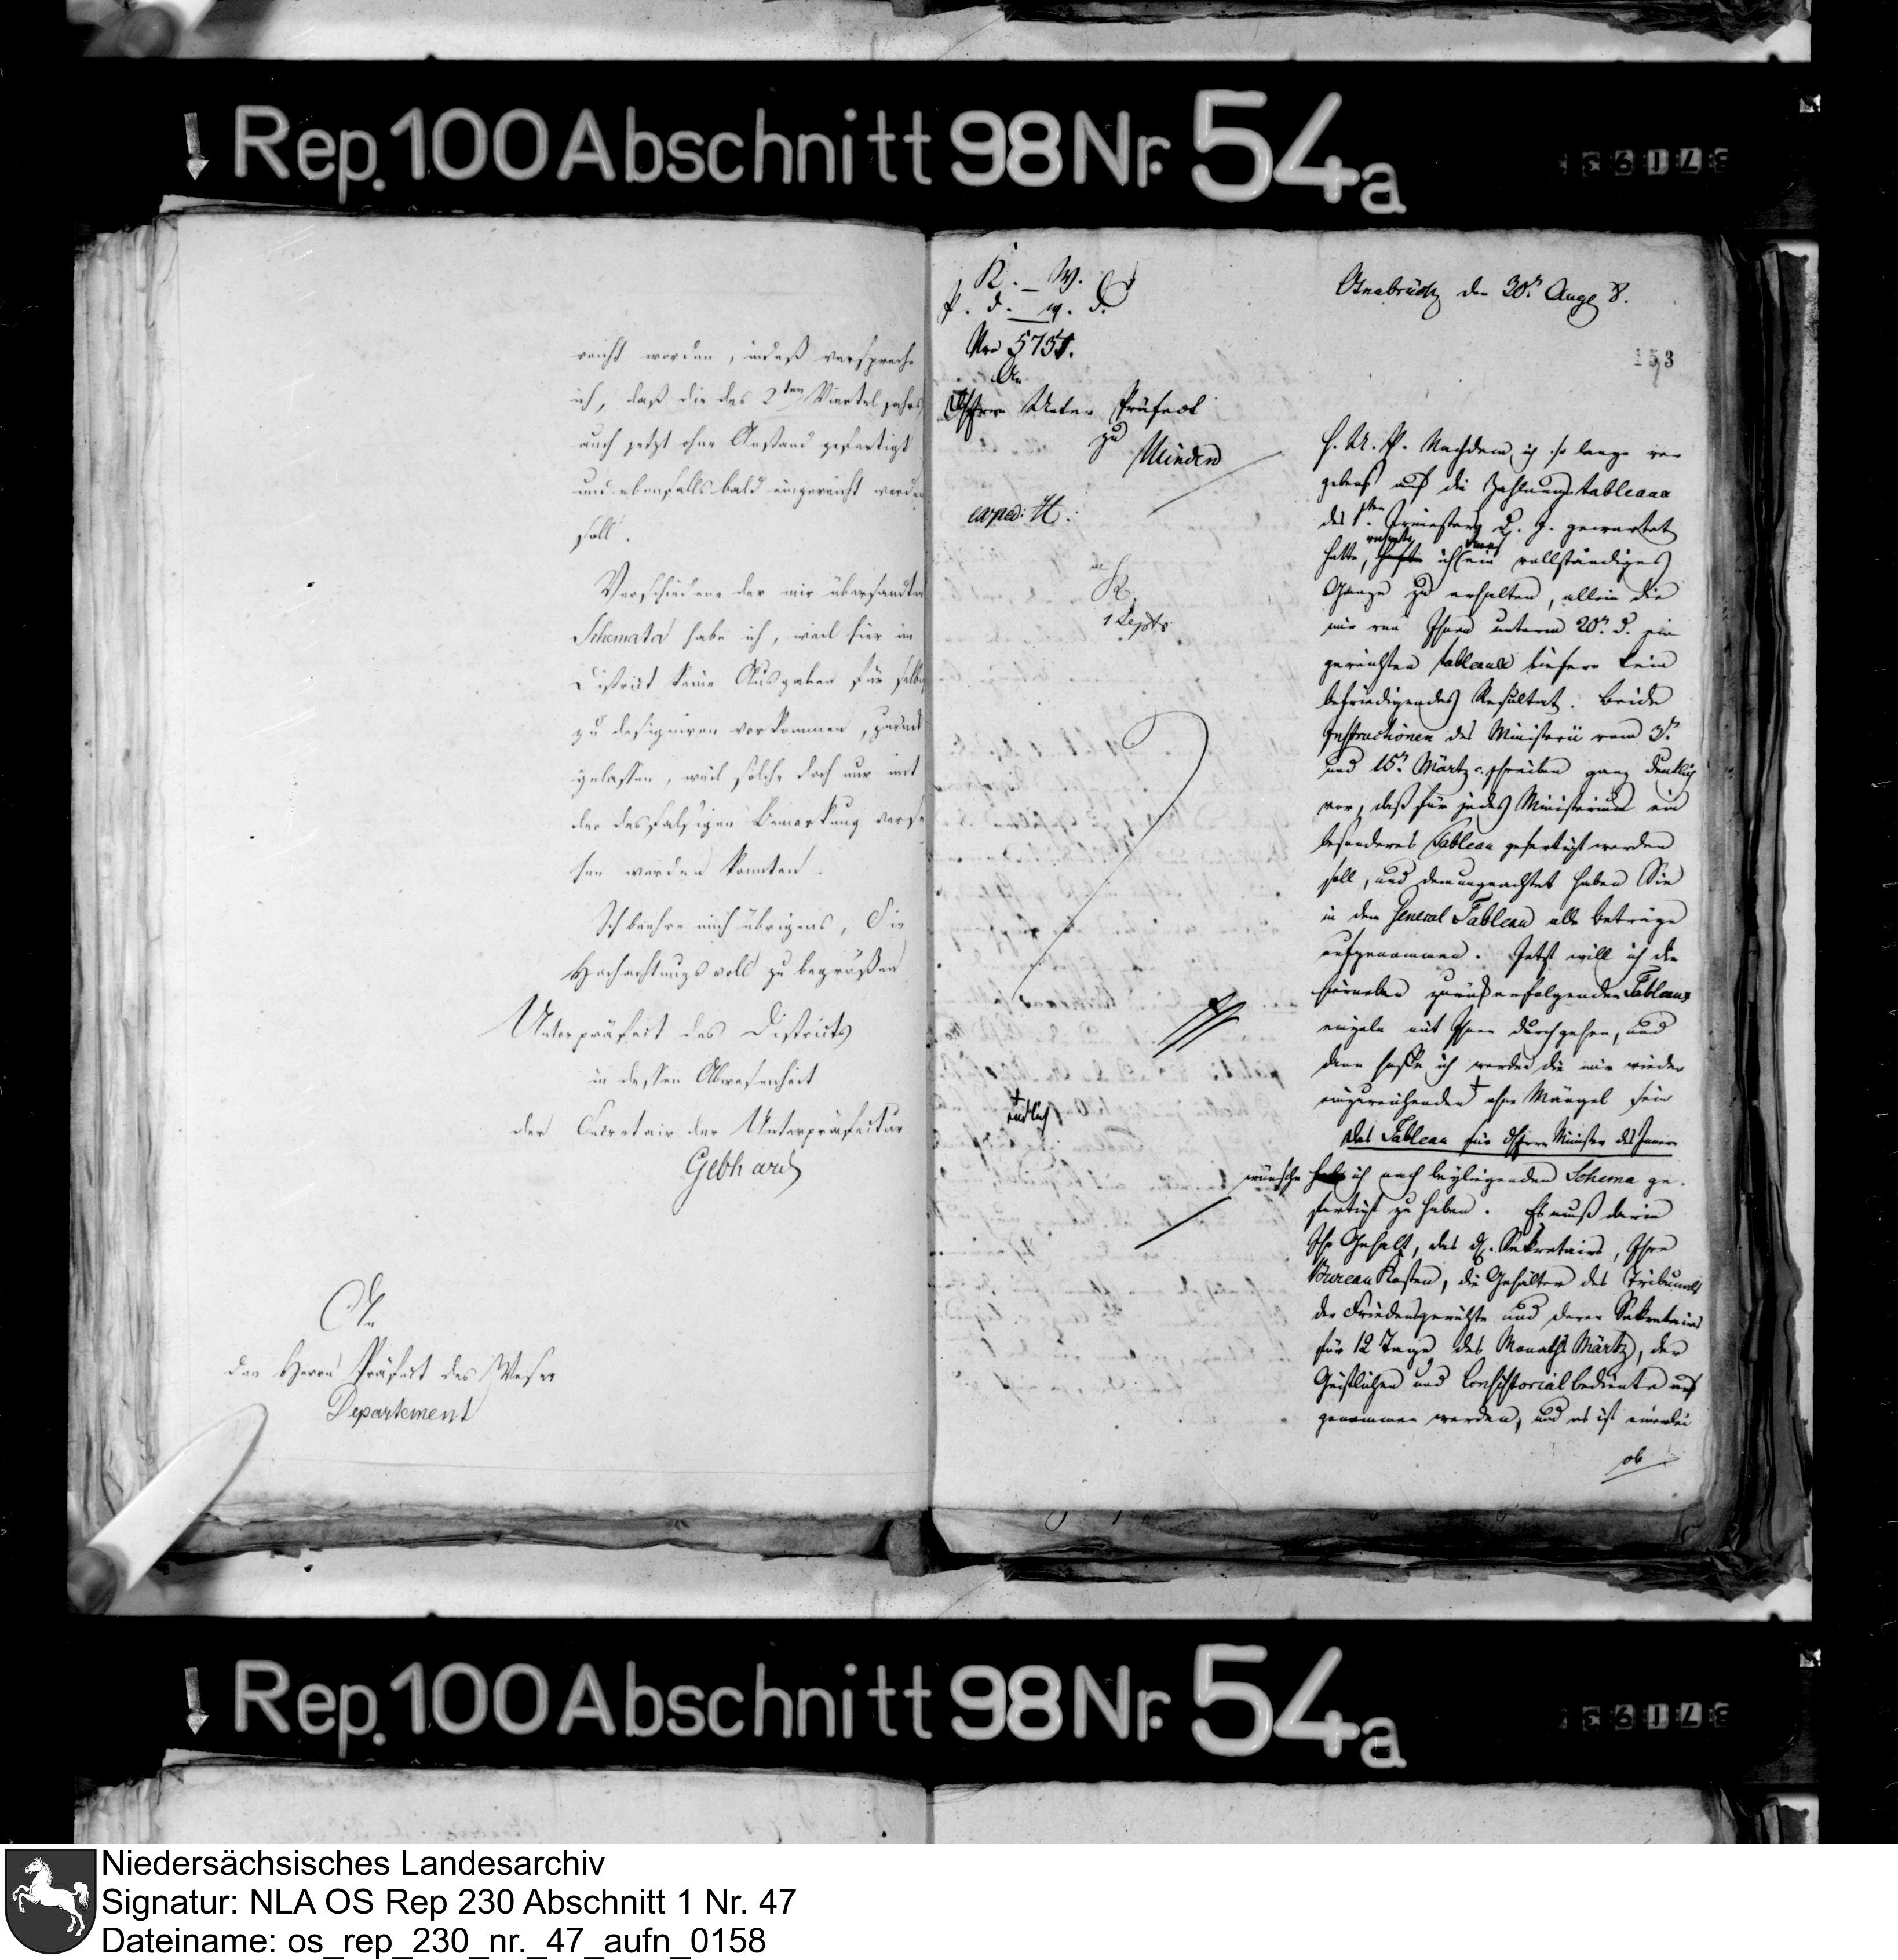 Rep. 100 Abschnitt 98 Nr. 54a
reicht worden, indeß verspreche
ich, daß die des 2ten Viertel Jahrs
auch jetzt ohne Anstand gefertigt
und ebenfalls bald eingereicht werden
soll.
Verschiedene der mir übersandten
Schemata habe ich, weil hier im
District keine Ausgaben für selbige
zu designiren vorkommen, zurück
gelassen, weil solche doch nur mit
der desfalsigen Bemerkung verse
hen werden konnten.
Ich beehre mich übrigens, Sie
Hochachtungsvoll zu begrüßen
Unterpräfect des Districts
in dessen Abwesenheit
der Secretair der Unterpräfectur
Gebhard
An
den Herrn Präfect des Weser
Departement
K. W.
P. d. W. D.
Nro 5751.
An
Herrn Unter Präfect
zu
Minden
exped: H.
R.
1 Septr
Osnabrück den 30n Aug 8.
153
H. U. P. Nachdem ich so lange ver
gebens auf die Zahlungstableaux
des 1sten Trimesters d. J. gewartet
hatte, hoffte ich ein vollständiges
Ganze zu erhalten, allein die
mir von Ihnen unterm 20n d. ein
gereichten tableaux liefern kein
befriedigendes Resultat. Beide
Instructionen des Ministerii vom 3n
und 15n Märtz c. schreiben ganz deutlich
vor, daß für jedes Ministerium ein
besonderes Tableau gefertigt werden
soll, und demungeachtet haben Sie
in dem General Tableau alle Beträge
aufgenommen. Jetzt will ich die
hierneben zurück erfolgenden Tableaux
einzeln mit Ihnen durchgehen, und
dann hoffe ich werden die mir wieder
einzureichenden + ohne Mängel sein
+
endlich
Das Tableau für Herrn Minister des Innern
wünsche ich nach beyliegenden Schema ge-
fertigt zu haben. Es muß darin
Ihr Gehalt, des H. Sekretairs, Ihre
Bureau Kosten, die Gehälter des Tribunals
der Friedensgerichte und deren Sekretairs
für 12 Tage des Monaths Märtz, der
Geistlichen und Consistorialbediente auf
genommen werden, und es ist einerlei
ob
Rep. 100 Abschnitt 98 Nr. 54a
Niedersächsisches Landesarchiv
Signatur: NLA OS Rep 230 Abschnitt 1 Nr. 47
Dateiname: os_rep_230_nr._47_aufn_0158